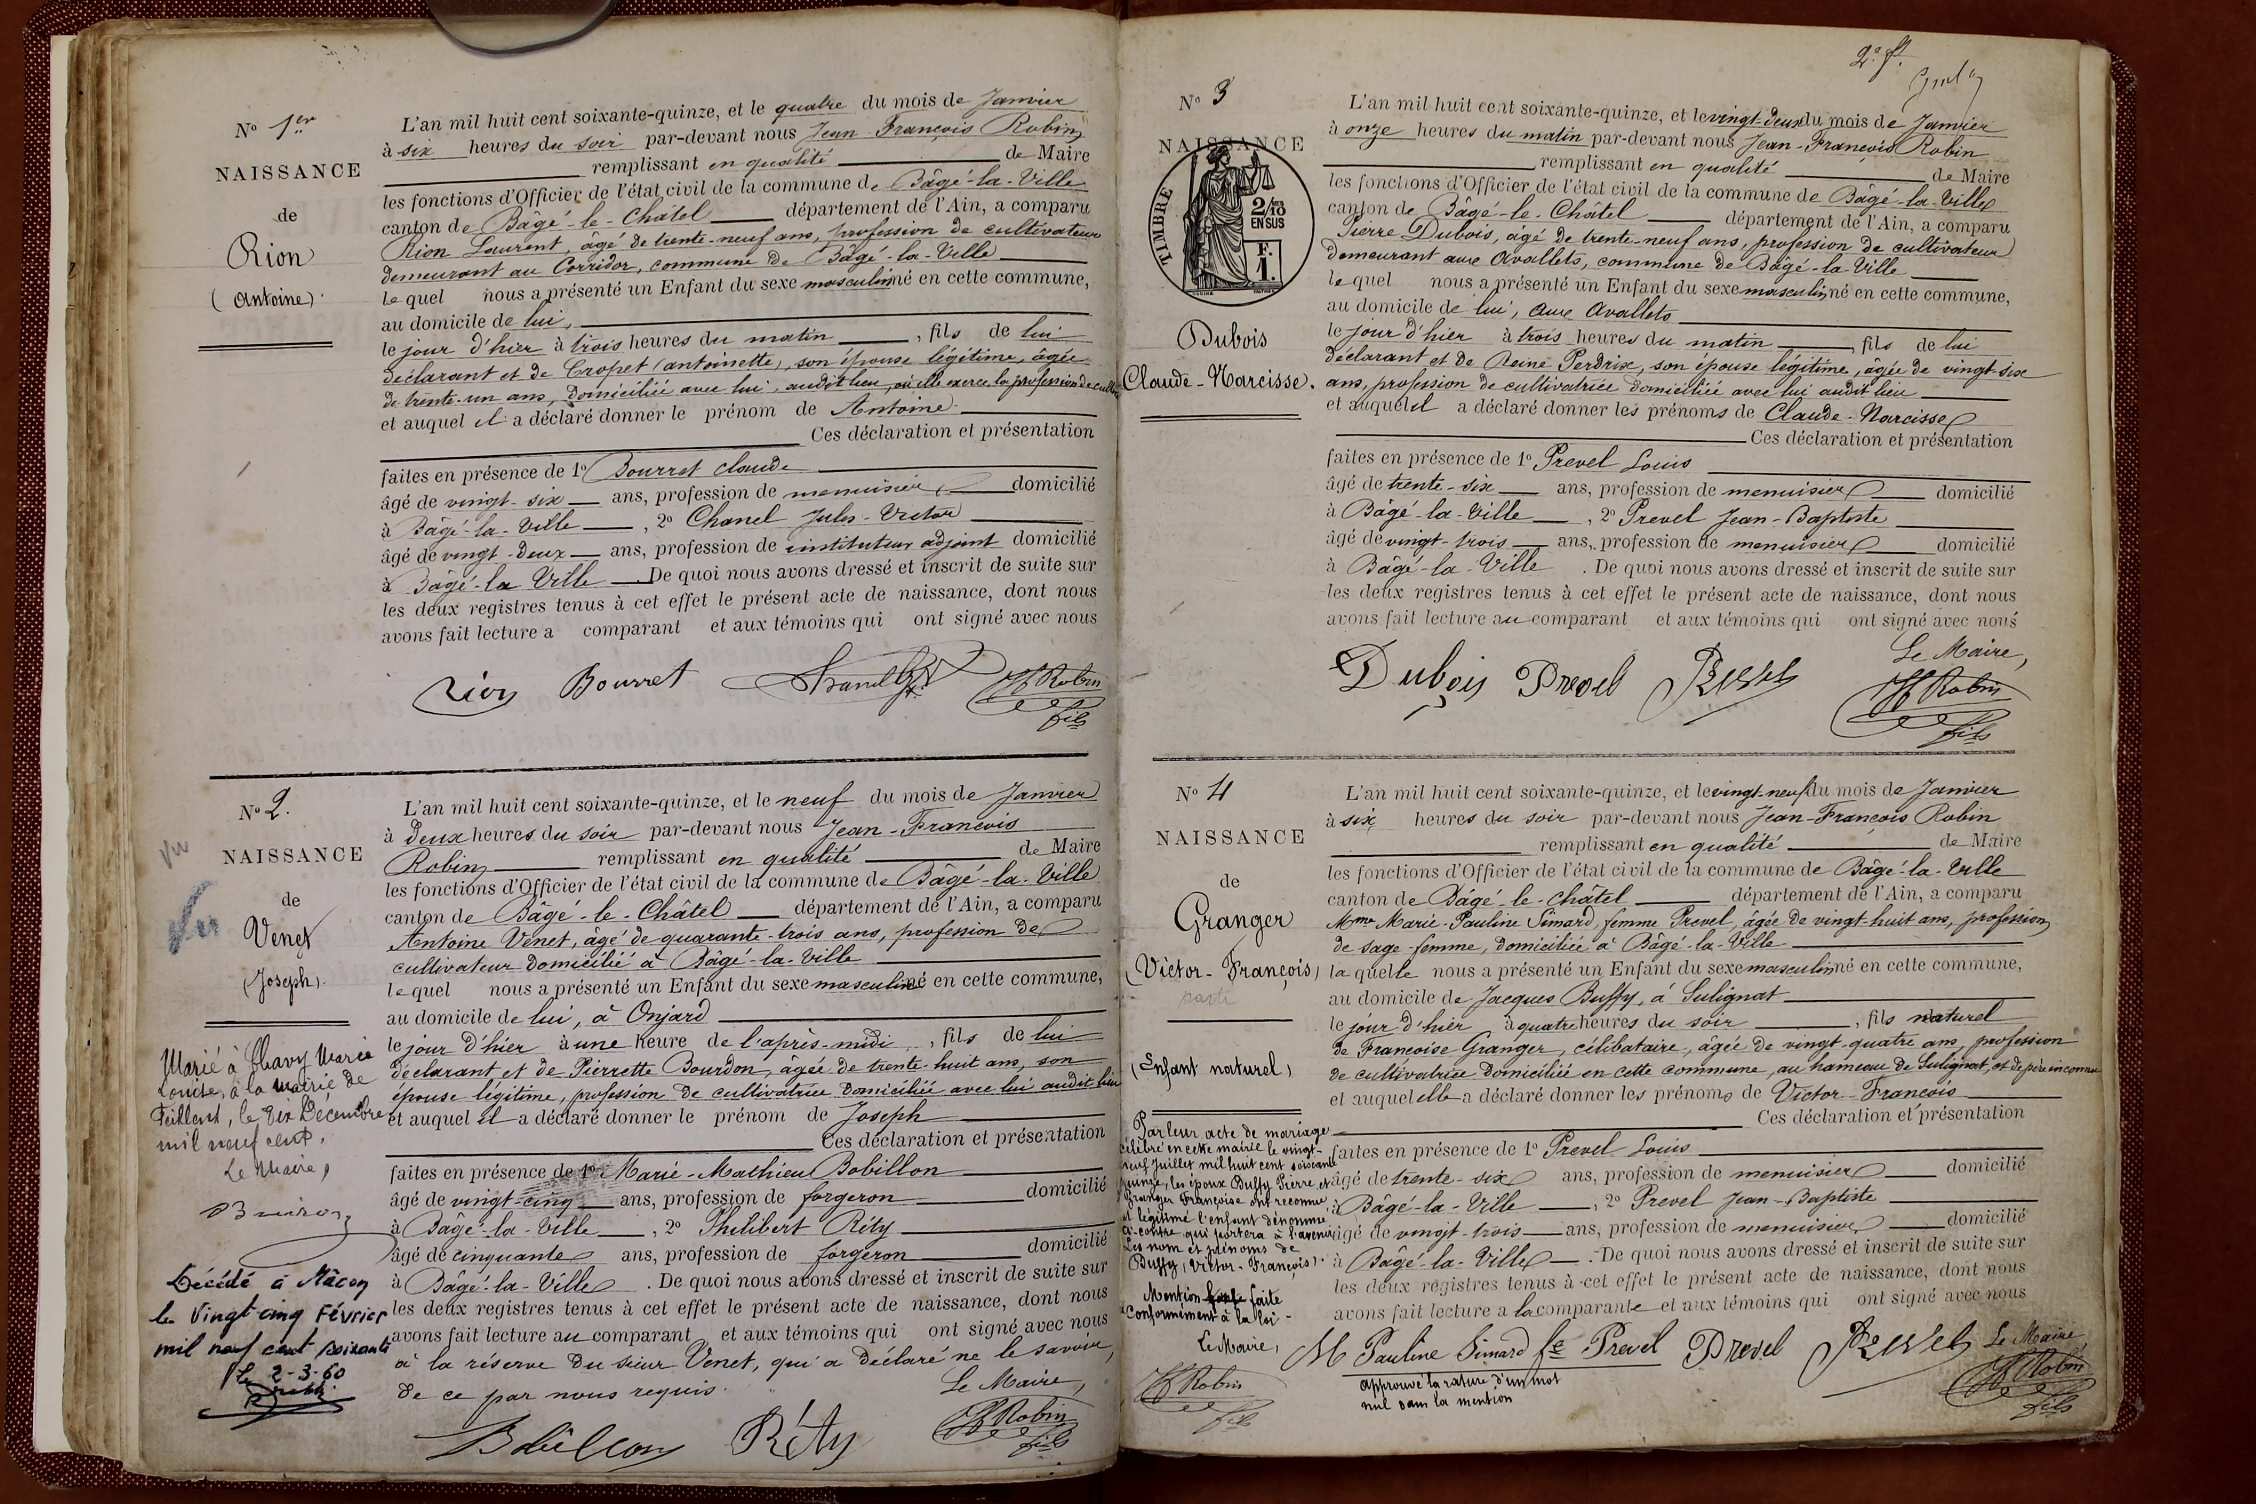 N° 1er
NAISSANCE
de
Rion
(Antoine).
L'an mil huit cent soixante-quinze, et le quatre du mois de Janvier
à six heures du soir par-devant nous Jean François Robin
remplissant en qualité de Maire
les fonctions d'Officier de l'état civil de la commune de Bâgé-la-Ville
canton de Bâgé-le-Châtel département de l'Ain, a comparu
Rion Laurent, âgé de trente-neuf ans, profession de cultivateur
demeurant au Corridor, commune de Bâgé-la-Ville
lequel nous a présenté un Enfant du sexe masculin né en cette commune,
au domicile de lui,
le jour d'hier à trois heures du matin, fils de lui
déclarant et de Cropet (antoinette), son épouse légitime, âgée
de trente-un ans, domiciliée avec lui, audit lieu, où elle exerce la profession de
et auquel il a déclaré donner le prénom de Antoine
Ces déclaration et présentation
faites en présence de 1° Bourret Claude
âgé de vingt-six ans, profession de menuisier domicilié
à Bâgé-la-Ville, 2° Chanel Jules-Victor
âgé de vingt-deux ans, profession de instituteur adjoint domicilié
à Bâgé-la Ville De quoi nous avons dressé et inscrit de suite sur
les deux registres tenus à cet effet le présent acte de naissance, dont nous
avons fait lecture a comparant et aux témoins qui ont signé avec nous
Rion Bourret Chanel JF Robin
fils
N° 2.
NAISSANCE
de
Venet
(Joseph).
Vu
Vu
L'an mil huit cent soixante-quinze, et le neuf du mois de Janvier
à deux heures du soir par-devant nous Jean-François
Robin remplissant en qualité de Maire
les fonctions d'Officier de l'état civil de la commune de Bâgé-la-Ville
canton de Bâgé-le-Châtel département de l'Ain, a comparu
Antoine Venet, âgé de quarante-trois ans, profession de
cultivateur domicilié à Bâgé-la-Ville
lequel nous a présenté un Enfant du sexe masculin né en cette commune,
au domicile de lui, à Onjard
le jour d'hier à une heure de l'après-midi, fils de lui
déclarant et de Pierrette Bourdon, âgée de trente-huit ans, son
épouse légitime, profession de cultivatrice domiciliée avec lui audit lieu
et auquel il a déclaré donner le prénom de Joseph
Ces déclaration et présentation
faites en présence de 1° Marie-Mathieu Bobillon
âgé de vingt-cinq ans, profession de forgeron domicilié
à Bâgé-la-Ville, 2° Philibert Réty
âgé de cinquante ans, profession de forgeron domicilié
à Bâgé-la-Ville. De quoi nous avons dressé et inscrit de suite sur
les deux registres tenus à cet effet le présent acte de naissance, dont nous
avons fait lecture au comparant et aux témoins qui ont signé avec nous
à la réserve du sieur Venet, qui a déclaré ne le savoir,
de ce par nous requis. Le Maire,
Bobillon Réty JF Robin
fils
Marié à Chavy Marie
Louise, à la mairie de
Feillens, le dix Décembre
mil neuf cent,
Le Maire,
Décédé à Mâcon
le Vingt cinq Février
mil neuf cent soixante
Le 2-3-60
2e f.
N° 3
NAISSANCE
TIMBRE
2/10
EN SUS
F.
1.
Dubois
Claude-Narcisse.
L'an mil huit cent soixante-quinze, et le vingt-deux du mois de Janvier
à onze heures du matin par-devant nous Jean-François Robin
remplissant en qualité de Maire
les fonctions d'Officier de l'état civil de la commune de Bâgé-la-Ville
canton de Bâgé-le-Châtel département de l'Ain, a comparu
Pierre Dubois, âgé de trente-neuf ans, profession de cultivateur
demeurant aux Avallets, commune de Bâgé-la-Ville
lequel nous a présenté un Enfant du sexe masculin né en cette commune,
au domicile de lui, aux Avallets
le jour d'hier à trois heures du matin, fils de lui
déclarant et de Reine Perdrix, son épouse légitime, âgée de vingt-six
ans, profession de cultivatrice domiciliée avec lui audit lieu
et auquel il a déclaré donner les prénoms de Claude-Narcisse
Ces déclaration et présentation
faites en présence de 1° Prevel Louis
âgé de trente-six ans, profession de menuisier domicilié
à Bâgé-la-Ville, 2° Prevel Jean-Baptiste
âgé de vingt-trois ans, profession de menuisier domicilié
à Bâgé-la-Ville. De quoi nous avons dressé et inscrit de suite sur
les deux registres tenus à cet effet le présent acte de naissance, dont nous
avons fait lecture au comparant et aux témoins qui ont signé avec nous
Le Maire,
Dubois Prevel Prevel JF Robin
fils
N° 4
NAISSANCE
de
Granger
(Victor-François)
(Enfant naturel)
L'an mil huit cent soixante-quinze, et le vingt-neuf du mois de Janvier
à six heures du soir par-devant nous Jean-François Robin
remplissant en qualité de Maire
les fonctions d'Officier de l'état civil de la commune de Bâgé-la-Ville
canton de Bâgé-le-Châtel département de l'Ain, a comparu
Mme Marie-Pauline Simard, femme Prevel, âgée de vingt-huit ans, profession
de sage-femme, domiciliée à Bâgé-la-Ville
laquelle nous a présenté un Enfant du sexe masculin né en cette commune,
au domicile de Jacques Buffy, à Sulignat
le jour d'hier à quatre heures du soir, fils naturel
de Françoise Granger, célibataire, âgée de vingt-quatre ans, profession
de cultivatrice domiciliée en cette commune, au hameau de Sulignat, et de père inconnu
et auquel elle a déclaré donner les prénoms de Victor-François
Ces déclaration et présentation
faites en présence de 1° Prevel Louis
âgé de trente-six ans, profession de menuisier domicilié
à Bâgé-la-Ville, 2° Prevel Jean-Baptiste
âgé de vingt-trois ans, profession de menuisier domicilié
à Bâgé-la-Ville. De quoi nous avons dressé et inscrit de suite sur
les deux registres tenus à cet effet le présent acte de naissance, dont nous
avons fait lecture a la comparante et aux témoins qui ont signé avec nous
M Pauline Simard fe Prevel Prevel Prevel Le Maire
JF Robin
fils
approuvé la rature d'un mot
nul dans la mention
Par leur acte de mariage
célébré en cette mairie le vingt-
neuf Juillet mil huit cent soixante
quinze, les époux Buffy Pierre et
Granger Françoise ont reconnu
et légitimé l'enfant dénommé
ci-contre qui portera à l'avenir
Les nom et prénoms de
Buffy (Victor-François).
Mention faite
conformément à la loi-
Le Maire,
JF Robin
fils